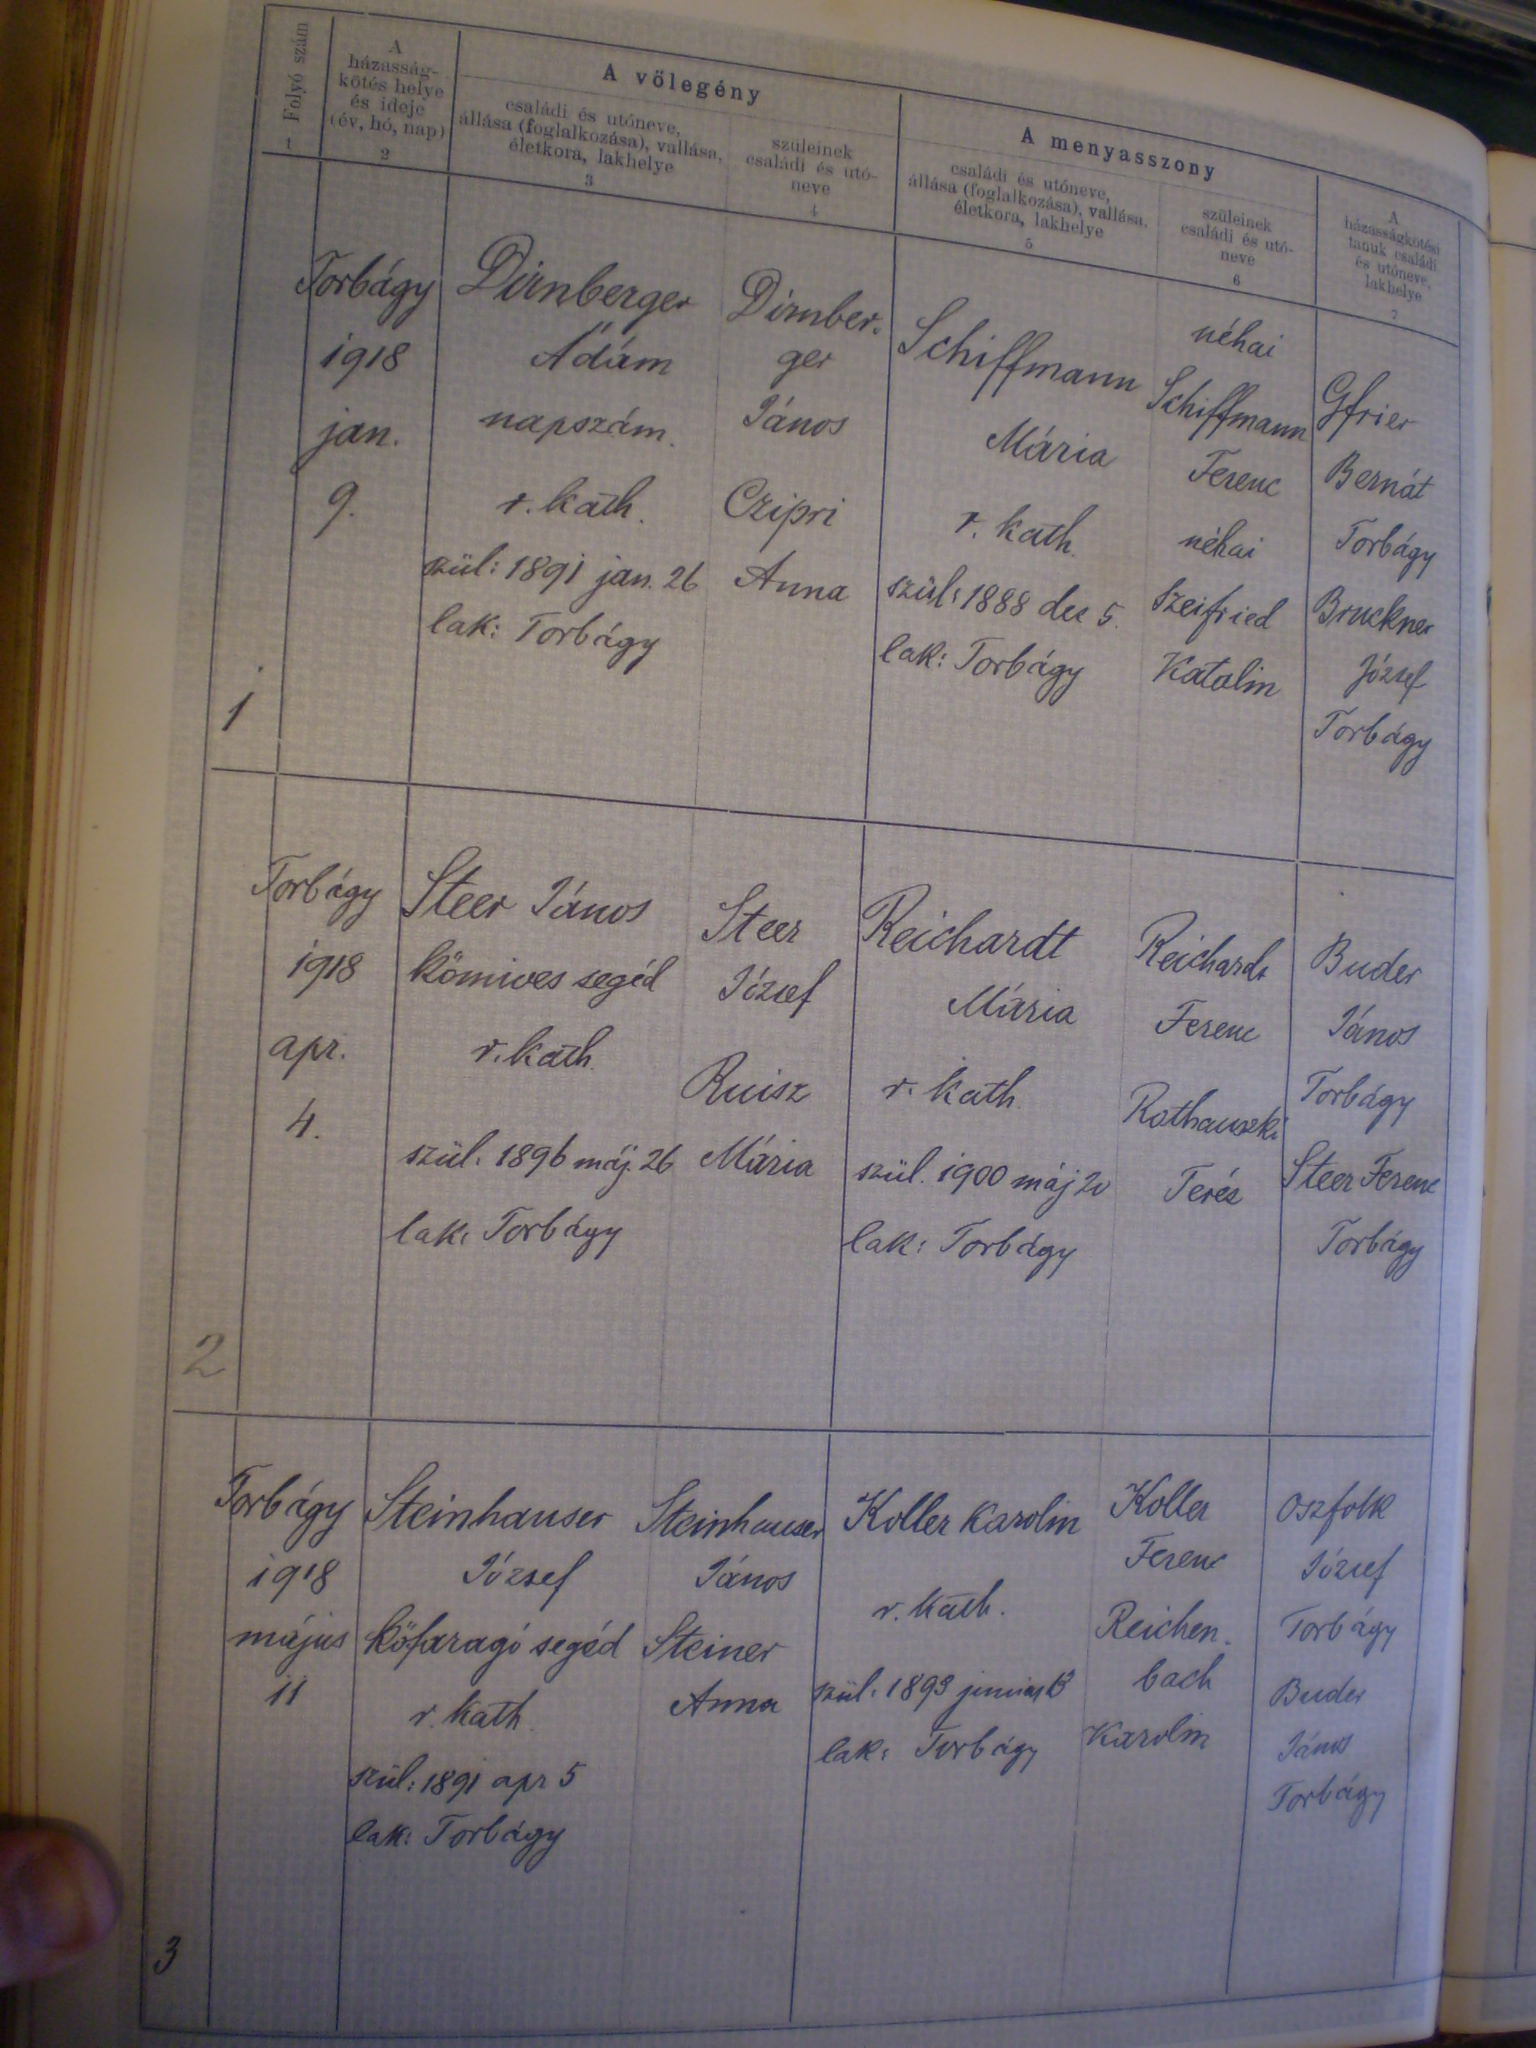 Folyó szám
1
A
házasság-
kötés helye
és ideje
(év, hó, nap)
2
A vőlegény
családi és utóneve,
állása (foglalkozása), vallása,
életkora, lakhelye
3
szüleinek
családi és utó-
neve
4
A menyasszony
családi és utóneve,
állása (foglalkozása), vallása,
életkora, lakhelye
5
szüleinek
családi és utó-
neve
6
A
házasságkötési
tanuk családi
és utóneve,
lakhelye
7
1
Torbágy
1918
jan.
9.
Dirnberger
Ádám
napszám.
r. kath.
szül: 1891 jan. 26
lak: Torbágy
Dirnber-
ger
János
Czipri
Anna
Schiffmann
Mária
r. kath.
szül: 1888 dec 5.
lak: Torbágy
néhai
Schiffmann
Ferenc
néhai
Szeifried
Katalin
Gfrier
Bernát
Torbágy
Bruckner
József
Torbágy
2
Torbágy
1918
apr.
4.
Steer János
kőmives segéd
r. kath.
szül. 1896 máj. 26
lak: Torbágy
Steer
József
Ruisz
Mária
Reichardt
Mária
r. kath.
szül. 1900 máj 20
lak: Torbágy
Reichardt
Ferenc
Rothauszki
Teréz
Buder
János
Torbágy
Steer Ferenc
Torbágy
3
Torbágy
1918
május
11
Steinhauser
József
kőfaragó segéd
r. kath.
szül: 1891 apr 5
lak: Torbágy
Steinhauser
János
Steiner
Anna
Koller Karolin
r. kath.
szül: 1893 junius 13
lak: Torbágy
Koller
Ferenc
Reichen-
bach
Karolin
Oszfolk
József
Torbágy
Buder
János
Torbágy